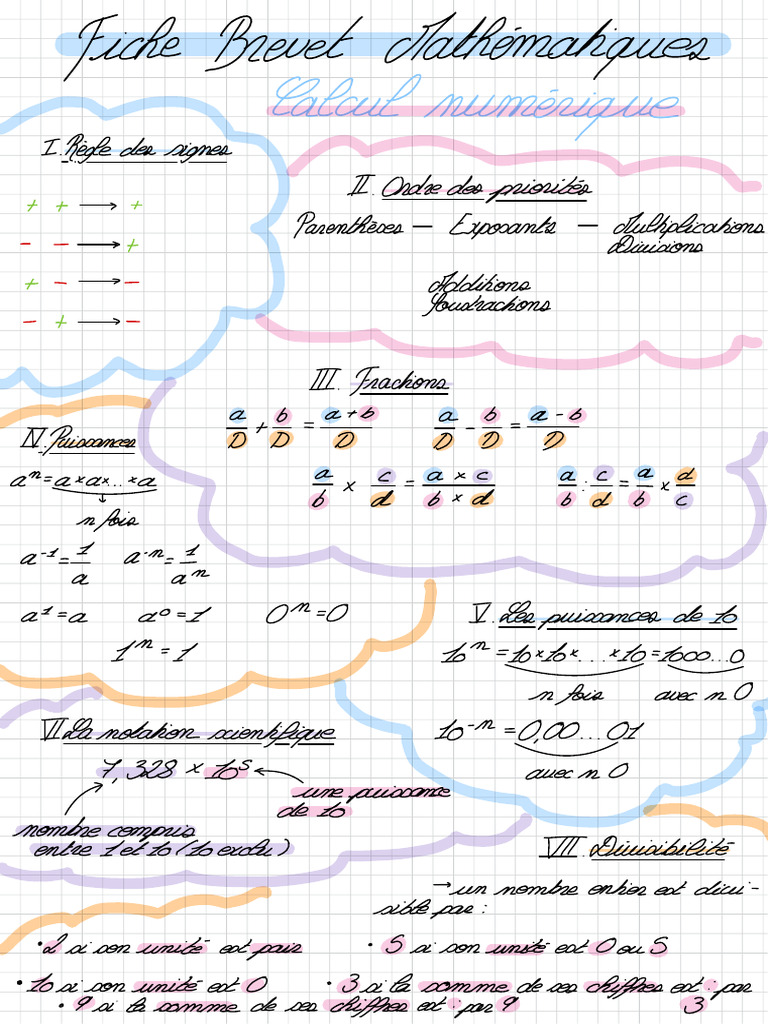 Fiche Brevet Mathématiques
Calcul numérique
I. Règle des signes
+ + → +
− − → +
+ − → −
− + → −
II. Ordre des priorités
Parenthèses — Exposants — Multiplications
Divisions
Additions
Soustractions
III. Fractions
a/D + b/D = a+b/D a/D - b/D = a-b/D
a/b × c/d = a × c/b × d a/b : c/d = a/b × d/c
IV. Puissances
aⁿ = a×a×...×a
n fois
a⁻¹ = 1/a a⁻ⁿ = 1/aⁿ
a¹ = a a⁰ = 1 0ⁿ = 0
1ⁿ = 1
V. Les puissances de 10
10ⁿ = 10×10×...×10 = 1000...0
n fois avec n 0
10⁻ⁿ = 0,00...01
avec n 0
VI La notation scientifique
7,328 × 10⁵
une puissance
de 10
nombre compris
entre 1 et 10 (10 exclu)
VII. Divisibilité
→ un nombre entier est divi-
sible par :
• 2 si son unité est pair
• 5 si son unité est 0 ou 5
• 10 si son unité est 0
• 3 si la somme de ses chiffres est : par
3
• 9 si la somme de ses chiffres est : par 9